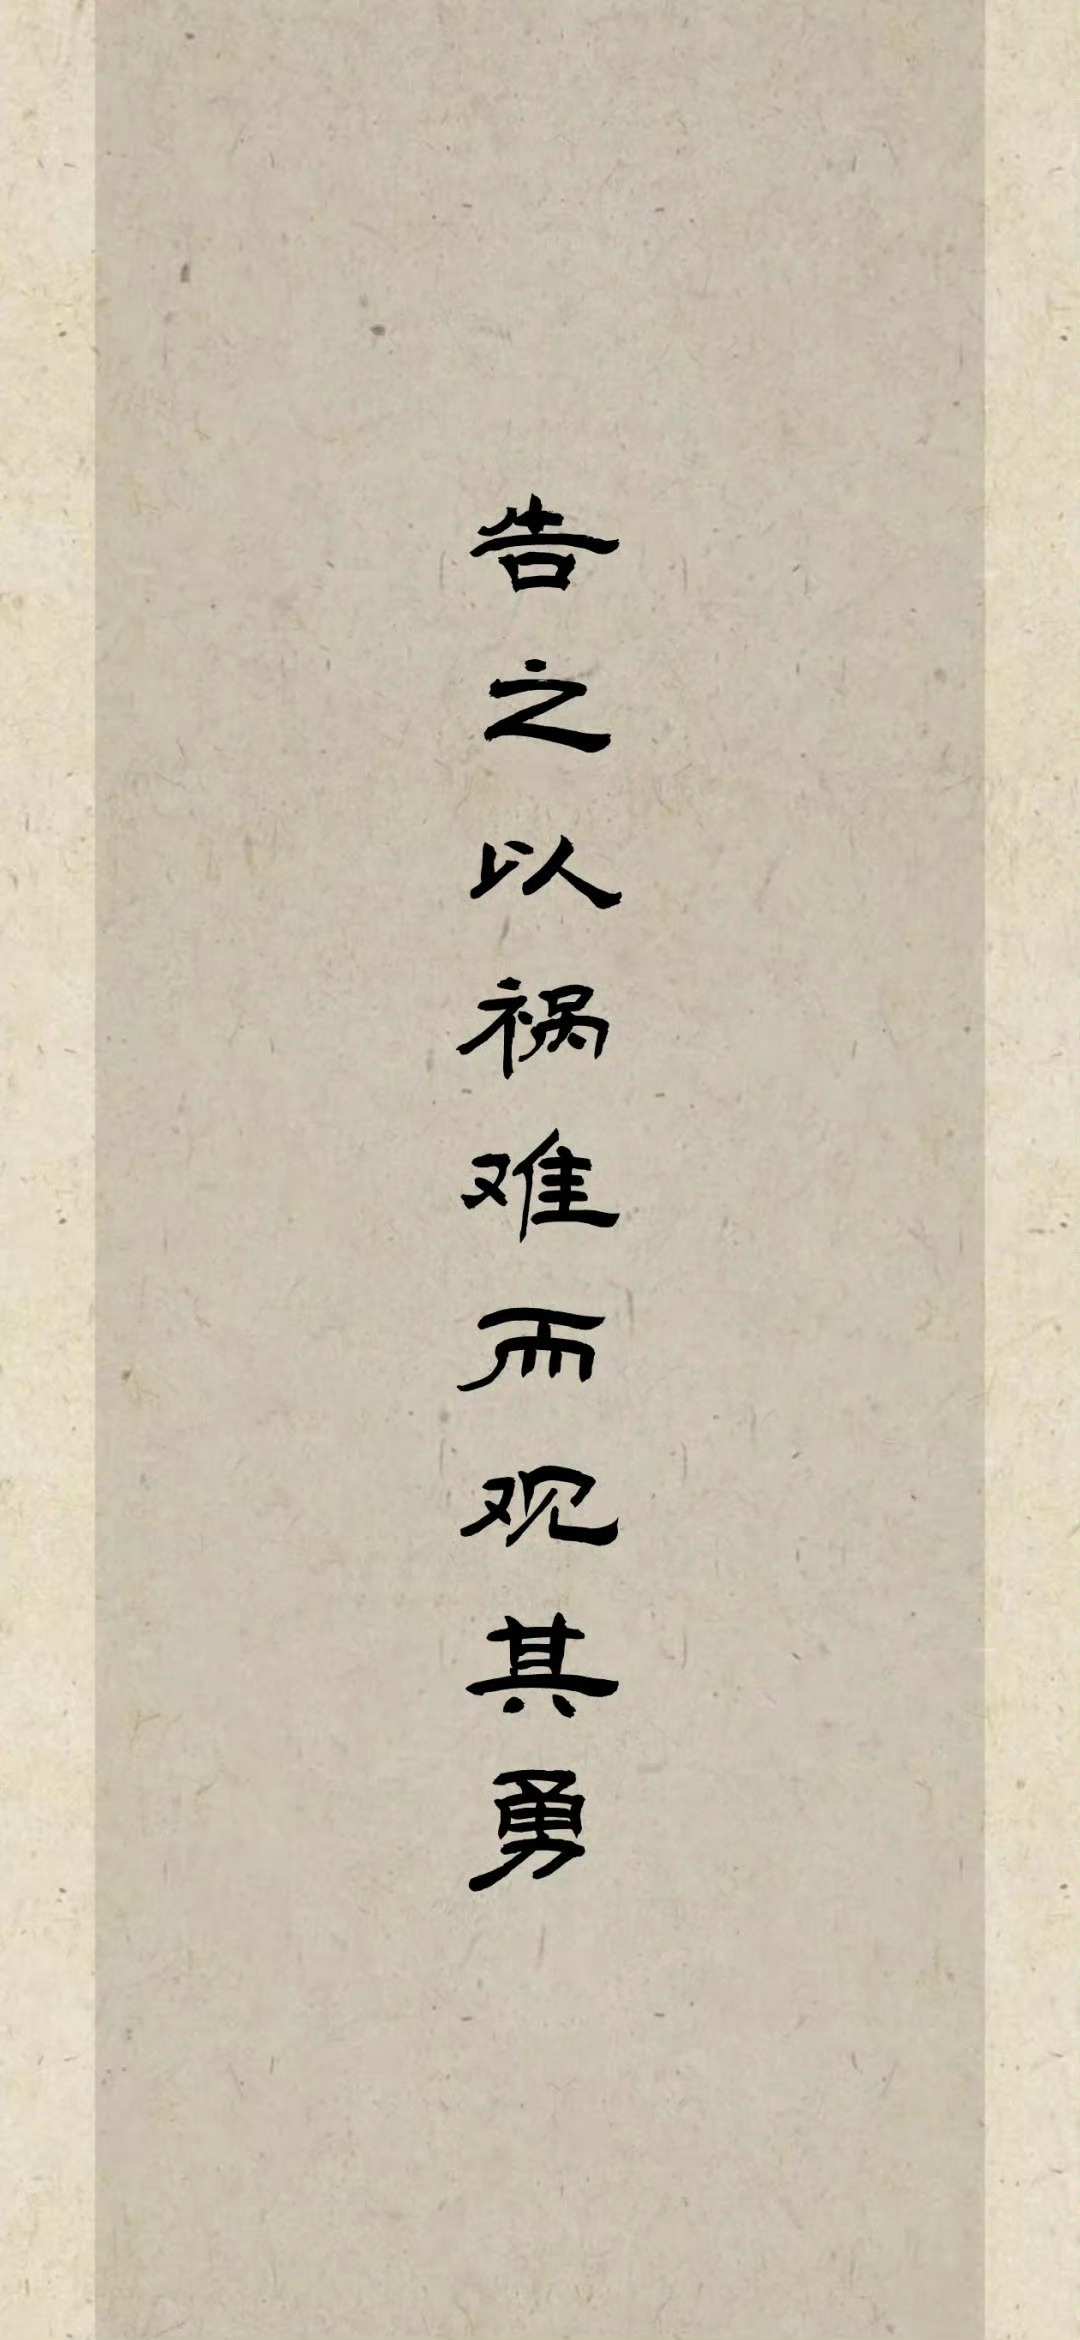 告之以祸难而观其勇